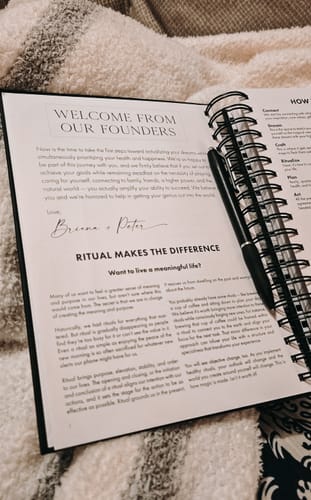 WELCOME FROM
OUR FOUNDERS
Now is the time to take the first steps toward actualizing your dreams and
simultaneously prioritizing your health and happiness. We're so happy to
be part of this journey with you, and we firmly believe that if you set out to
achieve your goals while remaining steadfast on the necessity of
caring for yourself, connecting to family, friends, a higher power, and the
natural world — you actually amplify your ability to succeed. We believe
you and we're honored to help in getting your genius out into the world.
Love,
Briana + Peter
RITUAL MAKES THE DIFFERENCE
Want to live a meaningful life?
Many of us want to feel a greater sense of meaning
and purpose in our lives, but aren't sure where this
would come from. The secret is that we are in charge
of creating the meaning and purpose.
Historically, we had rituals for everything that
mattered. But ritual is gradually disappearing as people
find they're too busy for it or can't see the value in it.
Even a ritual as simple as enjoying the peace of the
new morning is so often sacrificed for whatever new
alerts our phone might have for us.
Ritual brings purpose, elevation, stability, and order
to our lives. The opening and closing, or the initiation
and conclusion of a ritual aligns our intention with our
actions, and it sets the stage for the action to be as
effective as possible. Ritual grounds us in the present.
It rescues us from dwelling on the past and
about the future.
You probably already have some rituals – like brewing
a cup of coffee and sitting down to plan your day.
We believe it's worth bringing more intention to
rituals while consciously forging new ones, for instance,
knowing that cup of coffee could be honored within
a ritual to connect you to the earth and align your
focus for the next task. That minor difference in your
approach can infuse your life with a profound
specialness that transforms your experience.
You will see objective change, too. As you implement
healthy rituals, your outlook will change and the
world you create around yourself will change. You'll
have magic to make. Isn't it worth it?
HOW
Connect
Dream
Craft
Ritualize
Plan
Act